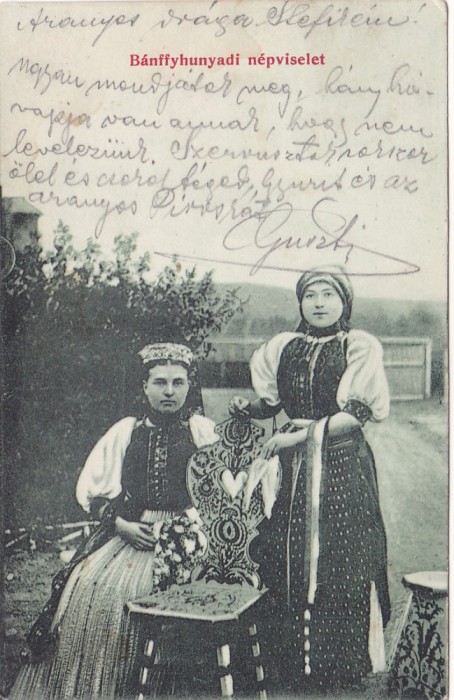 Aranyos drága Stefikém!
Bánffyhunyadi népviselet
Ugyan mondjátok meg, hány hó-
napja van annak, hogy nem
levelezünk. Szervusztok sokszor
ölel és csókol téged, Gyurit és az
aranyos Piroskát
Guszti